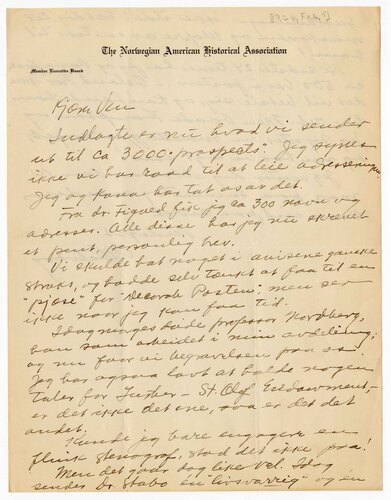 8936, Feb. 92
The Norwegian American Historical Association
Member Executive Board
Kjære Ven
Indlagte er nu hvad vi sender
ut til ca 3000 "prospects". Jeg synes
ikke vi har raad til at leie adressering
Jeg og kona har tat os av det.
Fra dr. fik jeg ca 300 navn og
adresser. Alle disse har jeg nu skrevet
et pent, personlig brev.
Vi skulde hat noget i avisene ganske
straks, og hadde selv tænkt at faa til en
"pjece" for "Decorah Posten", men ser
ikke naar jeg kan faa tid.
Idag morges døde professor Nordberg,
han som arbeidet i min avdeling,
og nu faar vi begravelsen paa os.
Jeg har ogsaa lovt at holde nogen
taler for Luther - St. Olaf Endowment,
er det ikke det ene, saa er det det
andet.
Kunde jeg bare engagere en
flink stenograf, stod det ikke paa!
Men det gaar dog like vel. Idag
sendes Dr. Stabo en "livsvarrig" og én